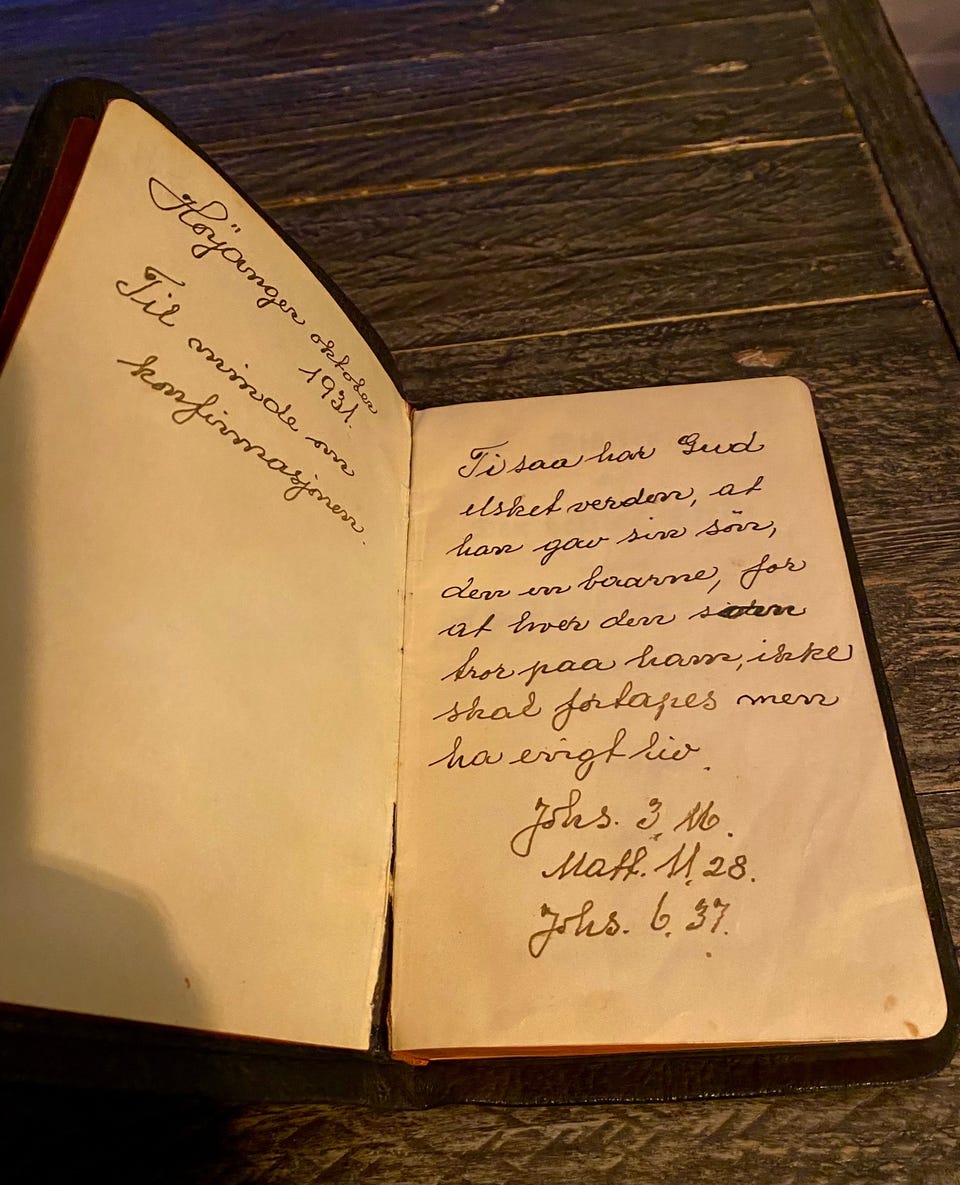 Höyanger oktober
1931.
Til minde om
konfirmasjonen.
Ti saa har Gud
elsket verden, at
han gav sin sön,
den en baarne, for
at hver den som
tror paa ham, ikke
skal fortapes men
ha evigt liv.
Johs. 3, 16.
Matt. 11, 28.
Johs. 6, 37.